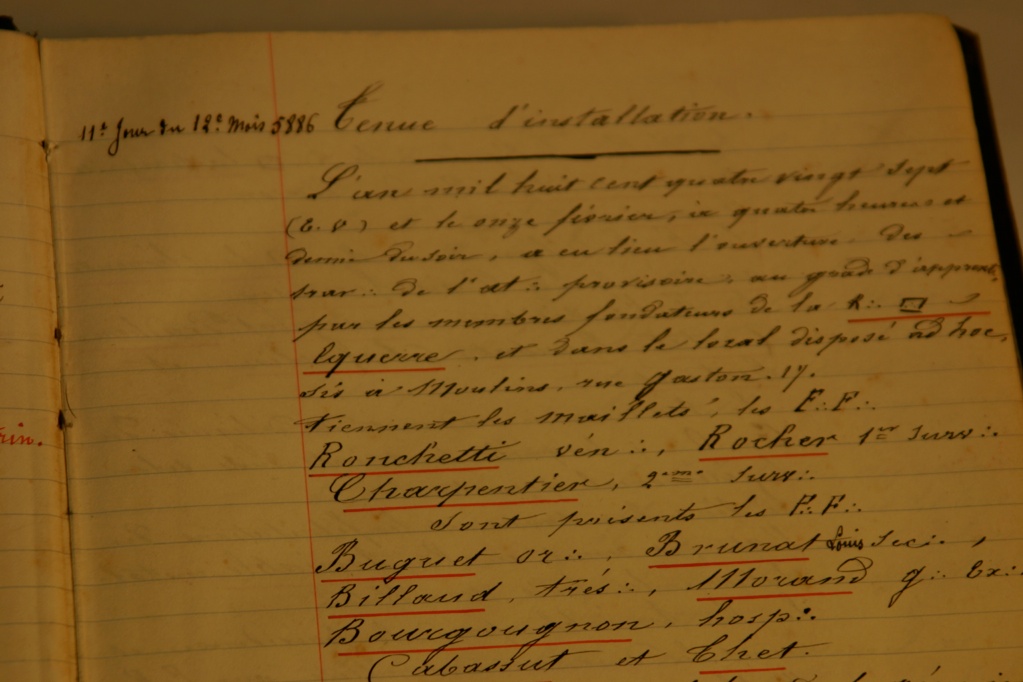 11e Jour du 12e Mois 5886 Tenue d'installation.
L'an mil huit cent quatre vingt sept
(E. V) et le onze février, à quatre heures et
demie du soir, a eu lieu l'ouverture des
trav∴ de l'at∴ provisoire∴ au grade d'apprenti,
par les membres fondateurs de la R∴ ▭
Equerre, et dans le local disposé ad hoc,
sis à Moulins, rue Gaston. 17.
Tiennent les maillets, les F∴F∴
Ronchetti vén∴, Rocher 1er surv∴
Charpentier, 2eme surv∴
Sont présents les F∴F∴
Buguet or∴, Brunat Louis sec∴,
Billaud, trés∴, Morand g∴ Ex∴
Bourgougnon, hosp∴
Cabassut et Chet.
rin.